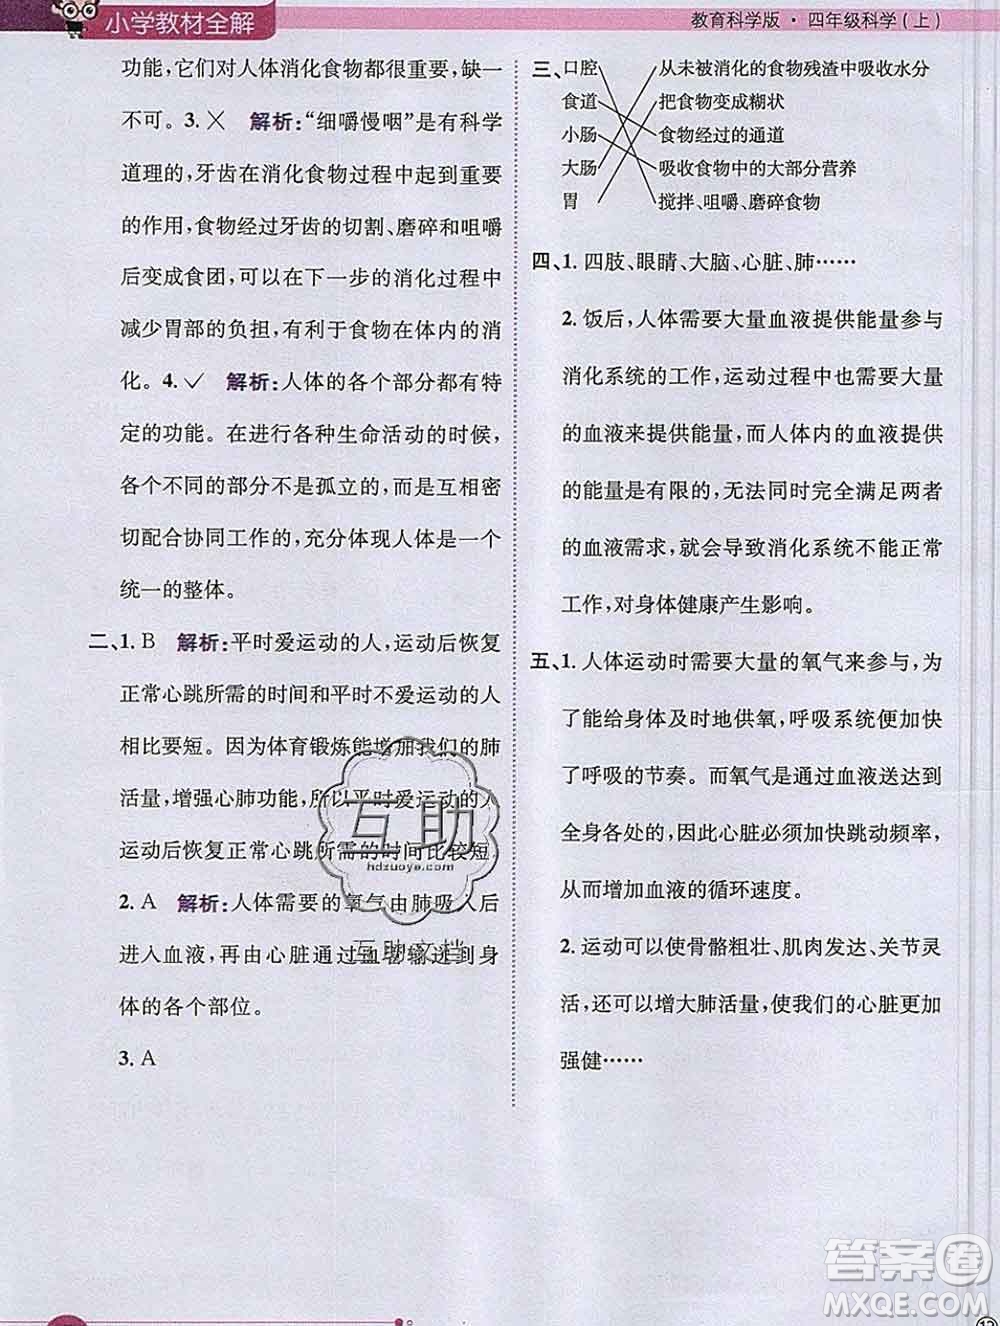 小学教材全解
教育科学版·四年级科学(上)
功能,它们对人体消化食物都很重要,缺一
不可。3.✕ 解析:“细嚼慢咽”是有科学
道理的,牙齿在消化食物过程中起到重要
的作用,食物经过牙齿的切割、磨碎和咀嚼
后变成食团,可以在下一步的消化过程中
减少胃部的负担,有利于食物在体内的消
化。4.✓ 解析:人体的各个部分都有特
定的功能。在进行各种生命活动的时候,
各个不同的部分不是孤立的,而是互相密
切配合协同工作的,充分体现人体是一个
统一的整体。
二、1.B 解析:平时爱运动的人,运动后恢复
正常心跳所需的时间和平时不爱运动的人
相比要短。因为体育锻炼能增加我们的肺
活量,增强心肺功能,所以平时爱运动的人
运动后恢复正常心跳所需的时间比较短。
2.A 解析:人体需要的氧气由肺吸入后
进入血液,再由心脏通过血管输送到身
体的各个部位。
3.A
三、口腔 从未被消化的食物残渣中吸收水分
食道 把食物变成糊状
小肠 食物经过的通道
大肠 吸收食物中的大部分营养
胃 搅拌、咀嚼、磨碎食物
四、1.四肢、眼睛、大脑、心脏、肺……
2.饭后,人体需要大量血液提供能量参与
消化系统的工作,运动过程中也需要大量
的血液来提供能量,而人体内的血液提供
的能量是有限的,无法同时完全满足两者
的血液需求,就会导致消化系统不能正常
工作,对身体健康产生影响。
五、1.人体运动时需要大量的氧气来参与,为
了能给身体及时地供氧,呼吸系统便加快
了呼吸的节奏。而氧气是通过血液送达到
全身各处的,因此心脏必须加快跳动频率,
从而增加血液的循环速度。
2.运动可以使骨骼粗壮、肌肉发达、关节灵
活,还可以增大肺活量,使我们的心脏更加
强健……
互助
hdzuoye.com
互助文档
答案圈
MXQE.COM